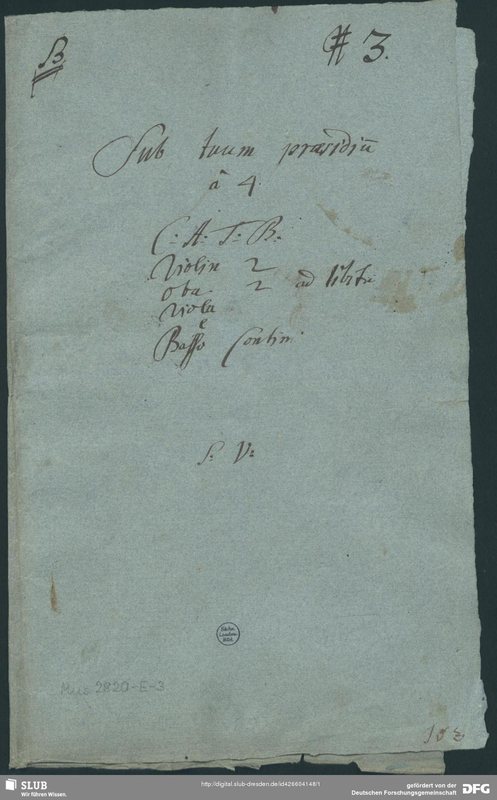 B
# 3.
Sub tuum præsidiū
à 4.
C: A: T: B:
Violin 2
Obα. 2 ad libitū
Viola
e
Basso Contin:
S: V:
Sächs.
Landes-
Bibl.
Mus 2820-E-3
SLUB
Wir führen Wissen.
http://digital.slub-dresden.de/id426604148/1
gefördert von der
Deutschen Forschungsgemeinschaft
DFG